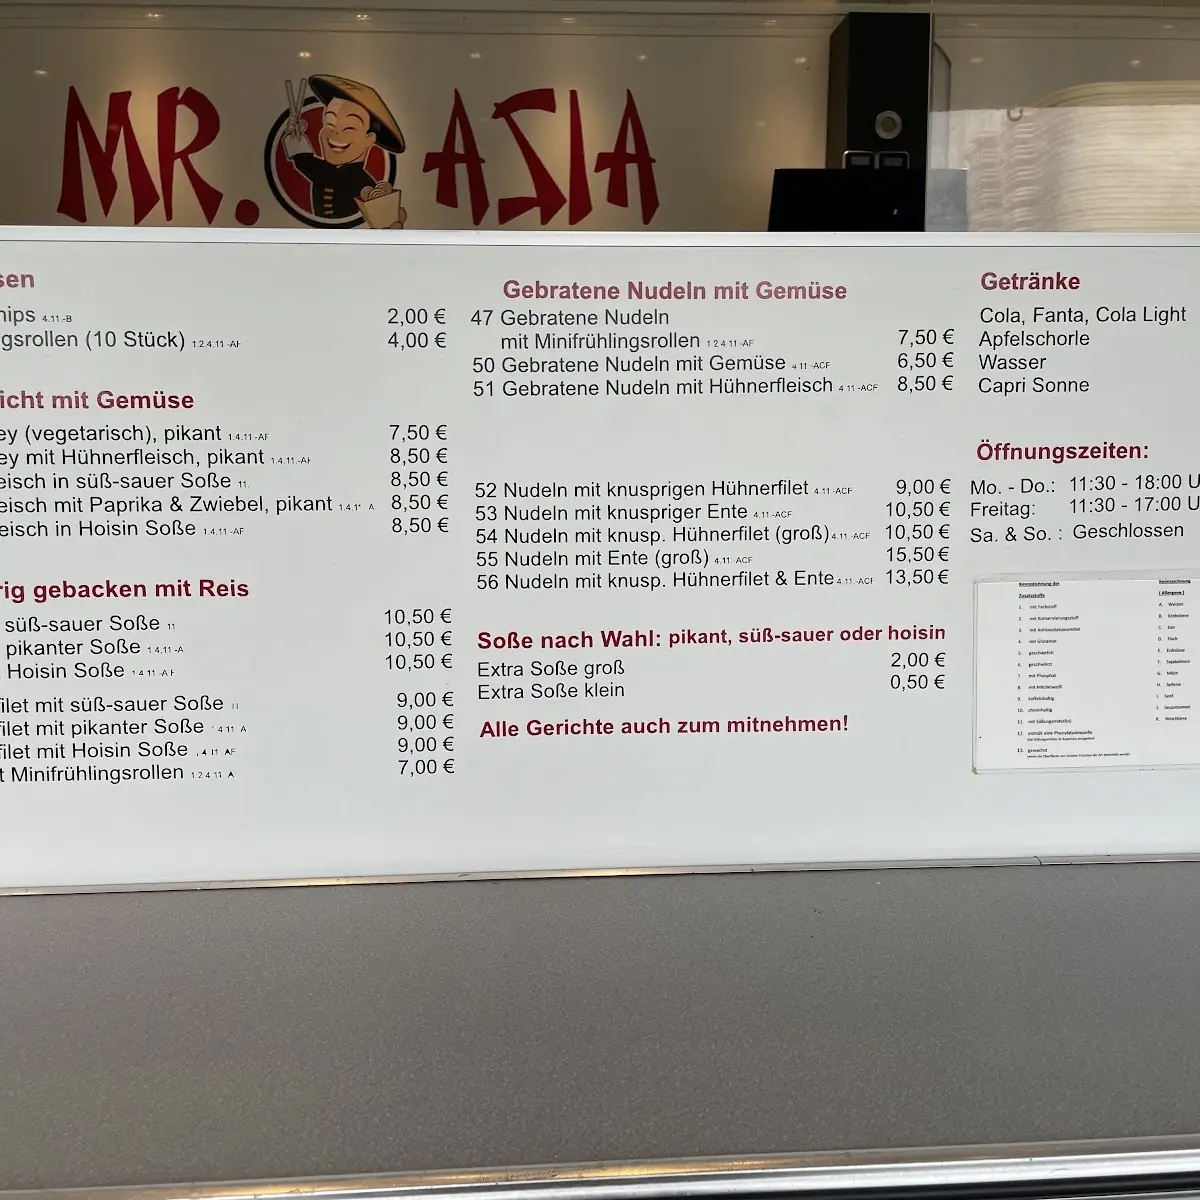 MR. ASIA
sen
hips 4.11.-B 2,00 €
gsrollen (10 Stück) 1.2.4.11 -AF 4,00 €
icht mit Gemüse
ey (vegetarisch), pikant 1.4.11.-AF 7,50 €
ey mit Hühnerfleisch, pikant 1.4.11.-AF 8,50 €
eisch in süß-sauer Soße 11. 8,50 €
eisch mit Paprika & Zwiebel, pikant 1.4.11 A 8,50 €
eisch in Hoisin Soße 1.4.11.-AF 8,50 €
rig gebacken mit Reis
süß-sauer Soße 11 10,50 €
pikanter Soße 1.4.11.-A 10,50 €
Hoisin Soße 1 4 11 -A F 10,50 €
ilet mit süß-sauer Soße 11 9,00 €
filet mit pikanter Soße 4 11 A 9,00 €
filet mit Hoisin Soße 4 11 AF 9,00 €
t Minifrühlingsrollen 1 2 4 11 A 7,00 €
Gebratene Nudeln mit Gemüse
47 Gebratene Nudeln
mit Minifrühlingsrollen 1 2 4 11 -AF 7,50 €
50 Gebratene Nudeln mit Gemüse 4 11 -ACF 6,50 €
51 Gebratene Nudeln mit Hühnerfleisch 4 11 -ACF 8,50 €
52 Nudeln mit knusprigen Hühnerfilet 4.11 -ACF 9,00 €
53 Nudeln mit knuspriger Ente 4.11.-ACF 10,50 €
54 Nudeln mit knusp. Hühnerfilet (groß) 4.11 -ACF 10,50 €
55 Nudeln mit Ente (groß) 4.11 -ACF 15,50 €
56 Nudeln mit knusp. Hühnerfilet & Ente 4.11 -ACF 13,50 €
Soße nach Wahl: pikant, süß-sauer oder hoisin
Extra Soße groß 2,00 €
Extra Soße klein 0,50 €
Alle Gerichte auch zum mitnehmen!
Getränke
Cola, Fanta, Cola Light
Apfelschorle
Wasser
Capri Sonne
Öffnungszeiten:
Mo. - Do.: 11:30 - 18:00 U
Freitag: 11:30 - 17:00 U
Sa. & So. : Geschlossen
Kennzeichnung der
Zusatzstoffe
1. mit Farbstoff
2. mit Konservierungsstoff
3. mit Antioxidationsmittel
4. mit Glutamat
5. geschwefelt
6. geschwärzt
7. mit Phosphat
8. mit Milcheiweiß
9. koffeinhaltig
10. chininhaltig
11. mit Süßungsmittel(n)
12. enthält eine Phenylalaninquelle
13. gewachst
Kennzeichnung
( Allergene )
A. Weizen
B. Krebstiere
C. Eier
D. Fisch
E. Erdnüsse
F. Sojabohnen
G. Milch
H. Sellerie
I. Senf
J. Sesamsamen
K. Weichtiere